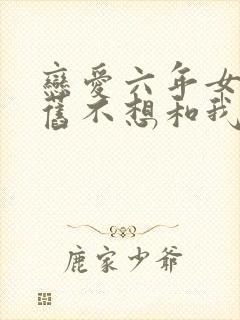 戀愛六年女
舊不想和我
鹿家少爺